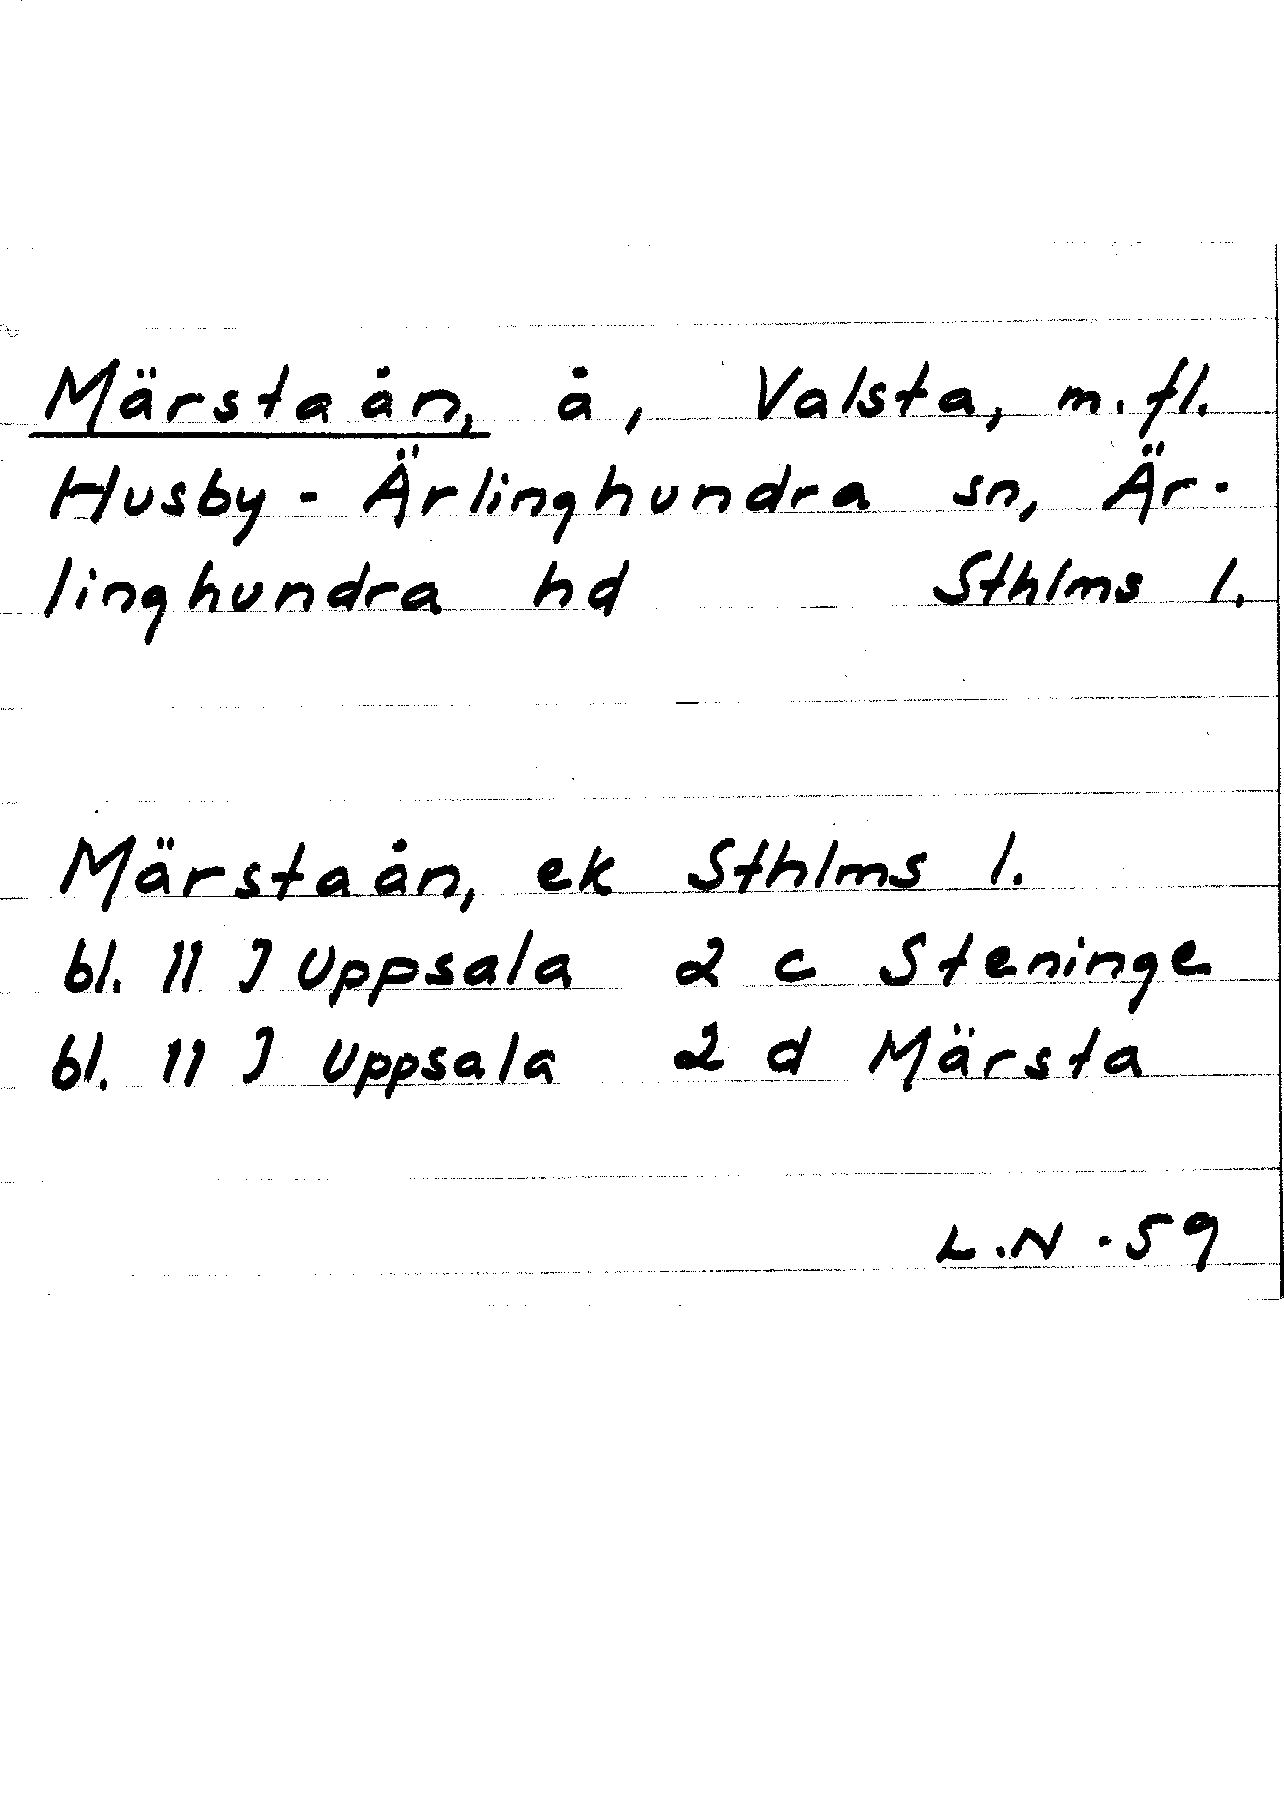 Märstaån, å, Valsta, m.fl.
Husby-Ärlinghundra sn, Är-
linghundra hd Sthlms l.
Märstaån, ek Sthlms l.
bl. 11 J Uppsala 2 c Steninge
bl. 11 J Uppsala 2 d Märsta
L.N -59